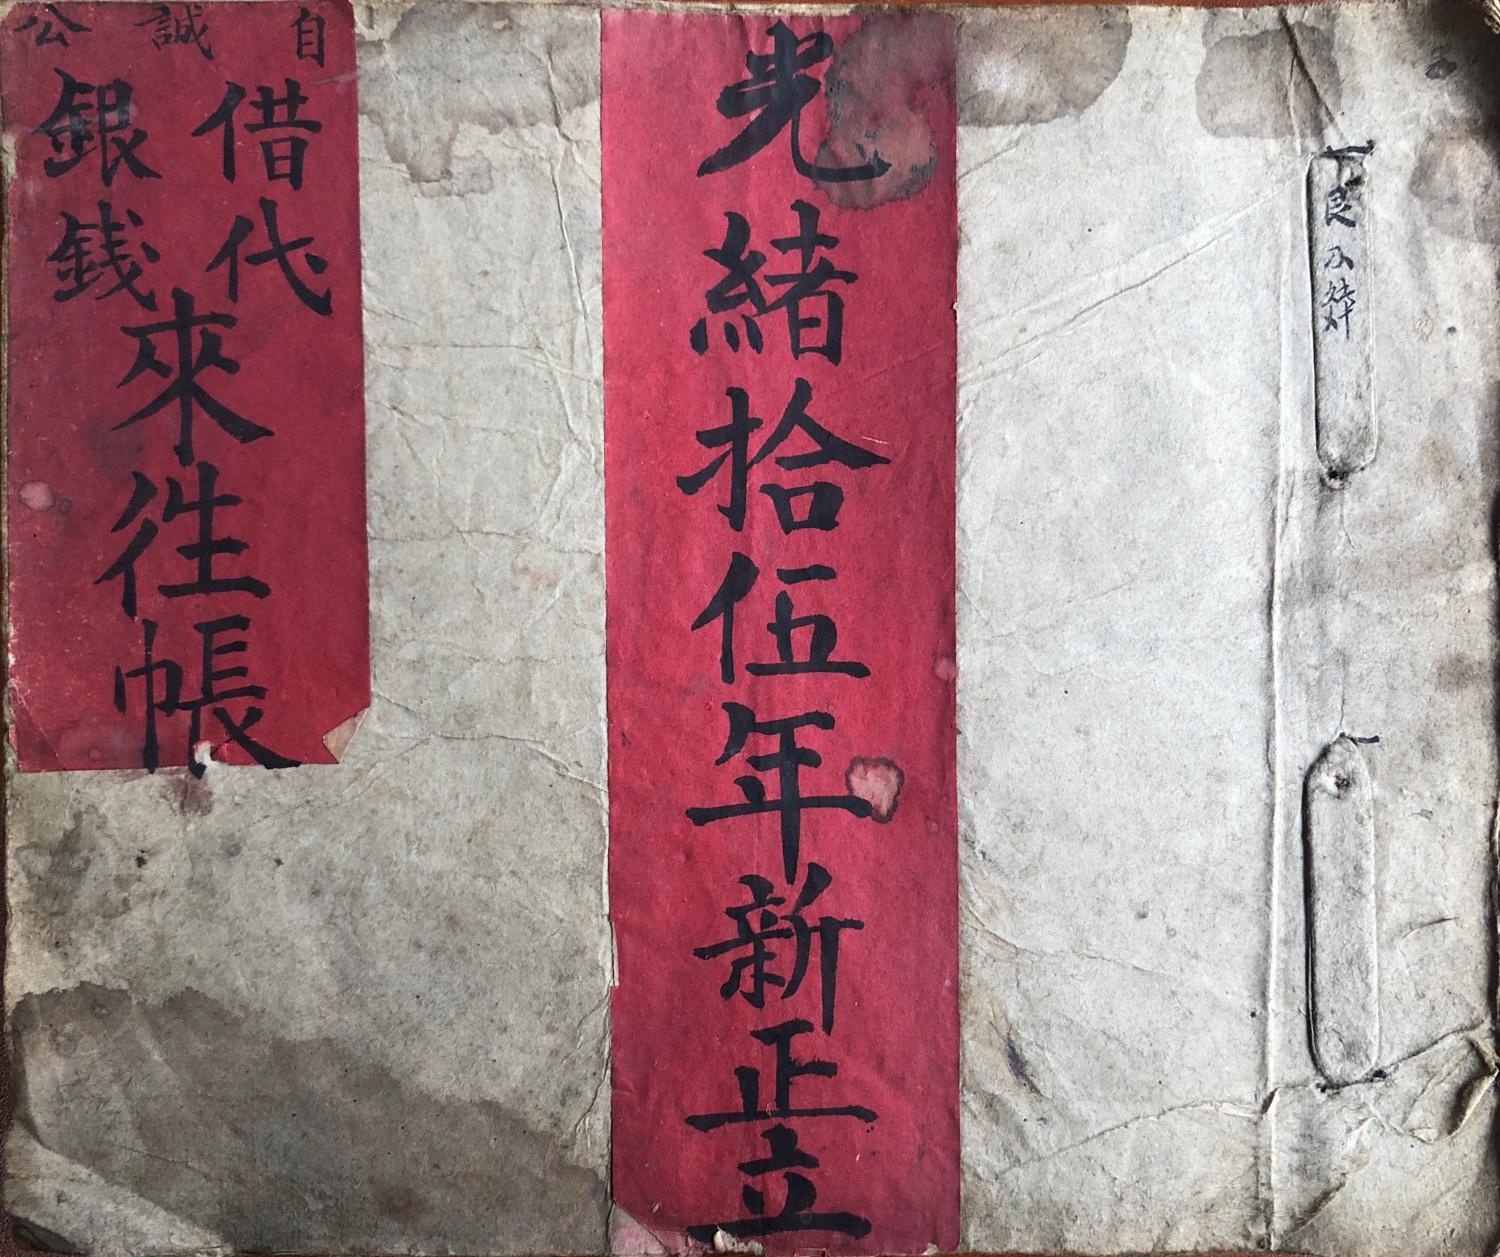 光緒拾伍年新正立
自誠公
借代
銀銭
來徃帳